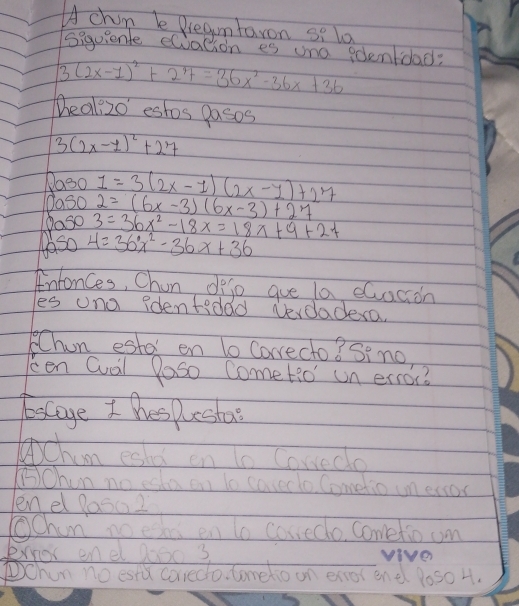 A chun le Preguntaron si la
siguiente ecuación es una identidad:
3(2x-1)² + 27 = 36x² - 36x + 36
Realizó estos pasos
3(2x-1)² + 27
Paso 1 = 3(2x-1)(2x-1)+27
Paso 2 = (6x-3)(6x-3)+27
Paso 3 = 36x² - 18x = 18x + 9 + 27
Paso 4 = 36x² - 36x + 36
Entonces, Chun dijo que la ecuación
es una identidad Verdadera.
¿Chun está en lo Correcto? Si no,
¿en Cuál Paso Cometió un error?
Escoge 1 Respuesta:
Ⓐ Chun está en lo Correcto
Ⓑ Chun no esta en lo correcto. Cometio un error
en el Paso 2
Ⓒ Chun no está en lo correcto. Cometio un
error en el paso 3
vivo
Ⓓ Chun no está correcto. Cometio un error en el Paso 4.